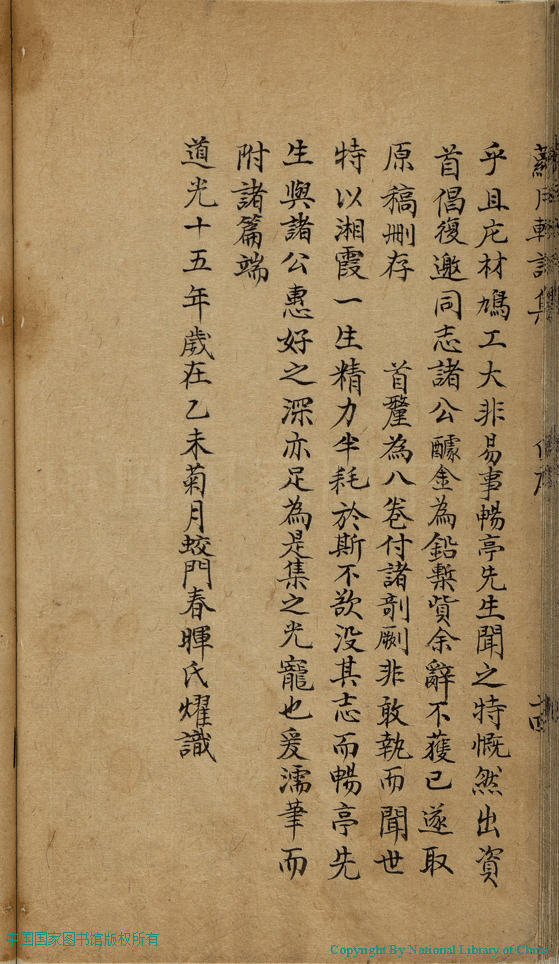 乎且庀材鳩工大非易事暢亭先生聞之特慨然出資
首倡復邀同志諸公醵金為鉛槧貲余辭不獲已遂取
原稿刪存　　首釐為八卷付諸剞劂非敢執而聞世
特以湘霞一生精力半耗於斯不欲没其志而暢亭先
生與諸公惠好之深亦足為是集之光寵也爰濡筆而
附諸篇端
道光十五年歲在乙未菊月蛟門春暉氏燿識
中国国家图书馆版权所有
Copyright By National Library of China